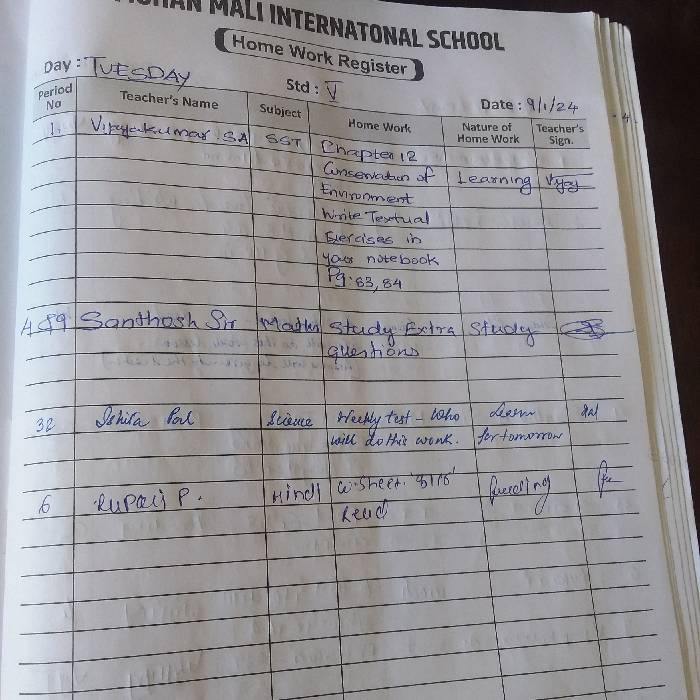 MOHAN MALI INTERNATONAL SCHOOL
Home Work Register
Day : TUESDAY
Std : V
Date : 9/1/24
Period No Teacher's Name Subject Home Work Nature of Home Work Teacher's Sign.
1. Vijayakumar SA SST Chapter 12
Conservation of Learning
Environment
Write Textual
Exercises in
your notebook
Pg. 83, 84
Santhosh Sir Maths Study Extra Study
questions
32 Ishita Pal Science Weekly test - Who Learn
will do this work. for tomorrow
6 Rupali P. Hindi W. Sheet
Read Reading